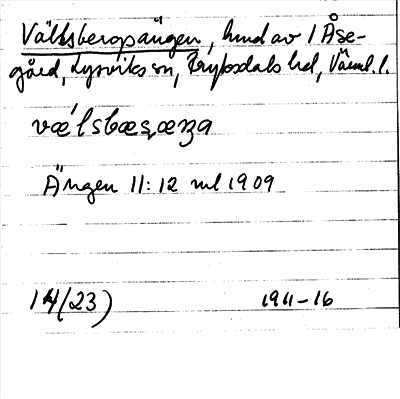 Vällsbergsängen, hmd av 1 Åse-
gård, Lysviks sn, Fryksdals hd, Värml. l.
vælsbæṣæŋa
Ängen 11:12 ml 1909
14(23) 1911-16